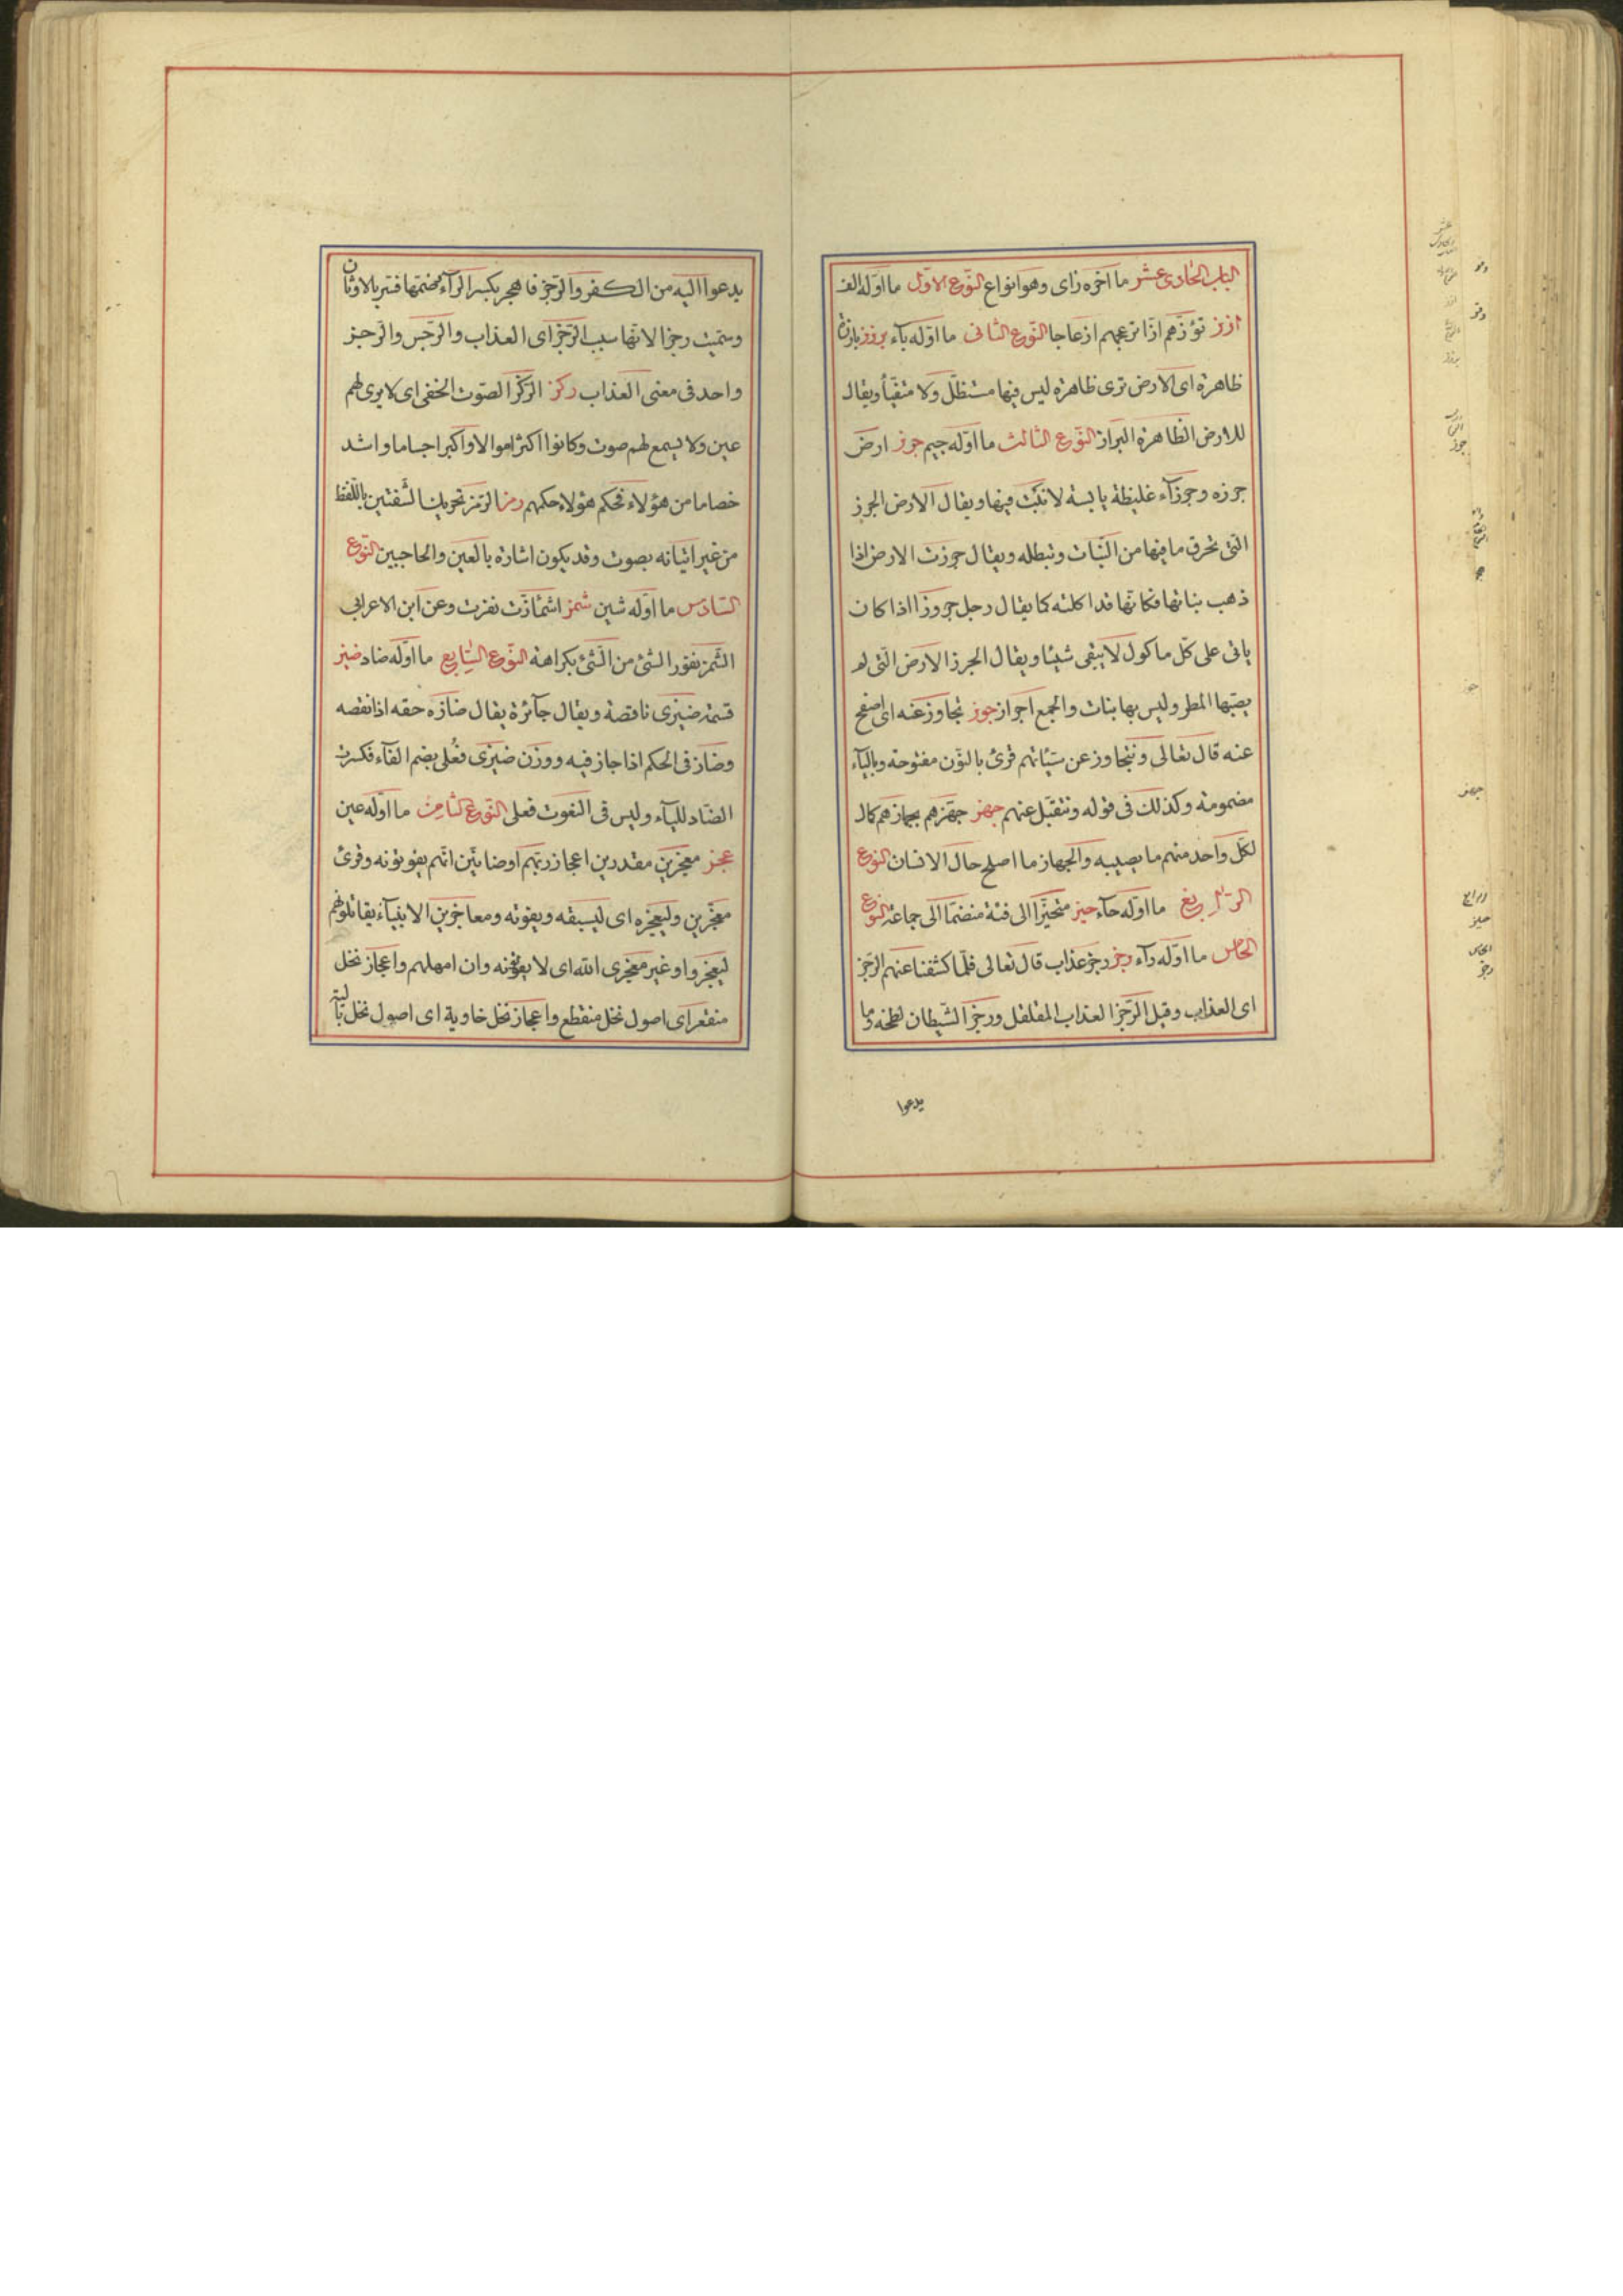 الباب الحادى عشر ما اخره زاى وهو انواع النوع الاول ما اوله الف
ازز تؤزهم ازا تزعجهم ازعاجا النوع الثانى ما اوله بآء برزز بارزة
ظاهرة اى الارض ترى ظاهرة ليس فيها مستظل ولا متفيأ ويقال
للارض الظاهرة البراز النوع الثالث ما اوله جيم جرز ارض
جرزه وجرزآء غليظة يابسة لا نبت فيها ويقال الارض الجرز
التى تحرق ما فيها من النبات وتبطله ويقال جرزت الارض اذا
ذهب نباتها فكانها قد اكلته كما يقال رجل جروزا اذا كان
ياتى على كل ماكول لا يبقى شيئا ويقال الجرز الارض التى لم
يصبها المطر وليس بها نبات والجمع اجراز جوز نجاوز عنه اى اصفح
عنه قال تعالى ونتجاوز عن سيئاتهم قرئ بالنون مفتوحة وبالياء
مضمومة وكذلك فى قوله ونتقبل عنهم جهز جهزهم بجهازهم كال
لكل واحد منهم ما يصيبه والجهاز ما اصلح حال الانسان النوع
الرابع ما اوله حآء حيز متحيزا الى فئة منضما الى جماعة النوع
الخامس ما اوله رآء رجز رجز عذاب قال تعالى فلما كشفنا عنهم الرجز
اى العذاب وقيل الرجز العذاب المقلقل ورجز الشيطان لطخه وما
يدعوا
يدعوا اليه من الكفر والرجز فاهجر بكسر الرآء وضمها فسر بالاوثان
وسميت رجزا لانها سبب الرجز اى العذاب والرجس والرجز
واحد فى معنى العذاب ركز الركز الصوت الخفى اى لا يرى لهم
عين ولا يسمع لهم صوت وكانوا اكثر اموالا واكبر اجساما واشد
خصاما من هؤلاء فحكم هؤلاء حكمهم رمز الرمز تحريك الشفتين باللفظ
من غير اتيانه بصوت وقد يكون اشارة بالعين والحاجبين النوع
السادس ما اوله شين شمز اشمازت نفرت وعن ابن الاعرابى
الشمز نفور الشئ من الشئ بكراهة النوع السابع ما اوله ضاد ضيز
قسمة ضيزى ناقصة ويقال جآئرة يقال ضازه حقه اذا نقصه
وضاز فى الحكم اذا جاز فيه ووزن ضيزى فعلى بضم الفآء فكسرت
الضاد للياء وليس فى النعوت فعلى النوع الثامن ما اوله عين
عجز معجزين مقدرين اعجاز ربهم او ضانين انهم يفوتونه وقرئ
معجزين وليعجزه اى ليسبقه ويفوته ومعاجزين الانبيآء يقاتلونهم
ليعجزوا وغير معجزى الله اى لا يفوتونه وان امهلهم واعجاز نخل
منقعر اى اصول نخل منقطع واعجاز نخل خاوية اى اصول نخل بالية